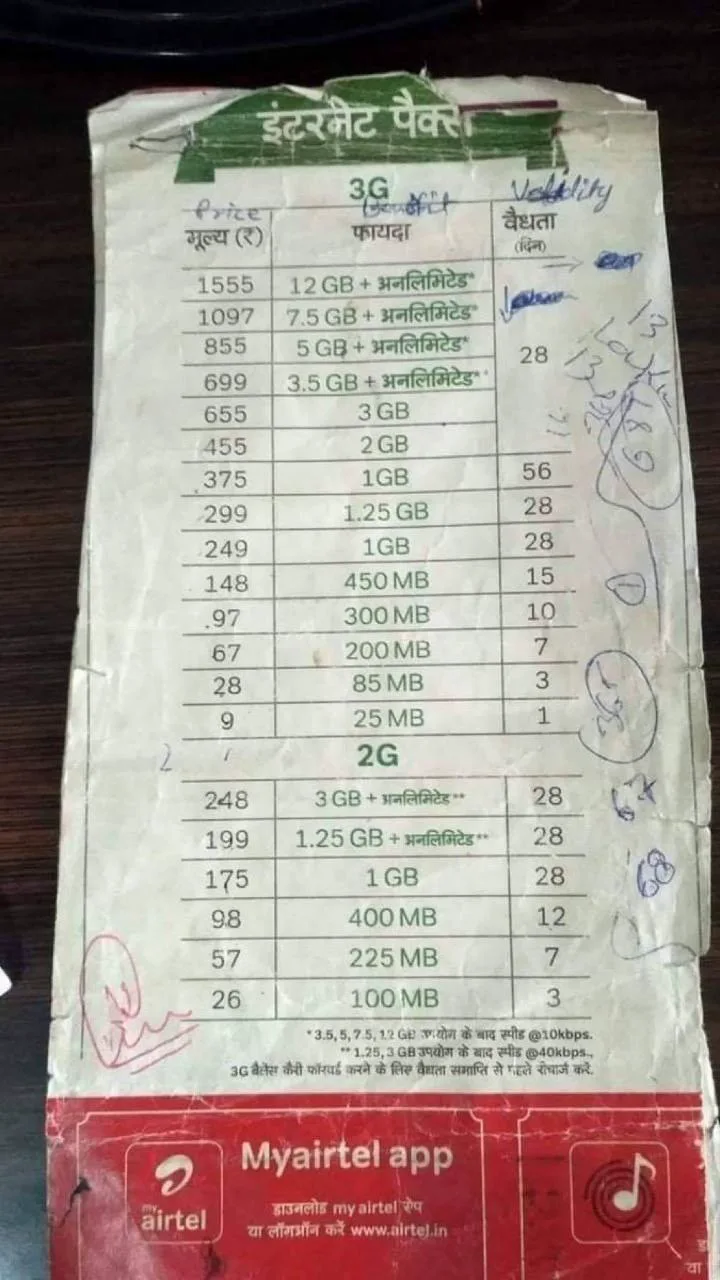 इंटरनेट पैक्स
3G
Price Benefit Validity
मूल्य (₹) फायदा वैधता
(दिन)
1555 12 GB + अनलिमिटेड*
1097 7.5 GB + अनलिमिटेड*
855 5 GB + अनलिमिटेड*
28
699 3.5 GB + अनलिमिटेड*
655 3 GB
455 2 GB
375 1GB 56
299 1.25 GB 28
249 1GB 28
148 450 MB 15
97 300 MB 10
67 200 MB 7
28 85 MB 3
9 25 MB 1
2G
248 3 GB + अनलिमिटेड** 28
199 1.25 GB + अनलिमिटेड** 28
175 1 GB 28
98 400 MB 12
57 225 MB 7
26 100 MB 3
*3.5, 5, 7.5, 12 GB उपयोग के बाद स्पीड @10kbps.
**1.25, 3 GB उपयोग के बाद स्पीड @40kbps.,
3G बैलेंस कैरी फॉरवर्ड करने के लिए वैधता समाप्ति से पहले रीचार्ज करें.
Myairtel app
my
airtel
डाउनलोड my airtel ऐप
या लॉगऑन करें www.airtel.in
या